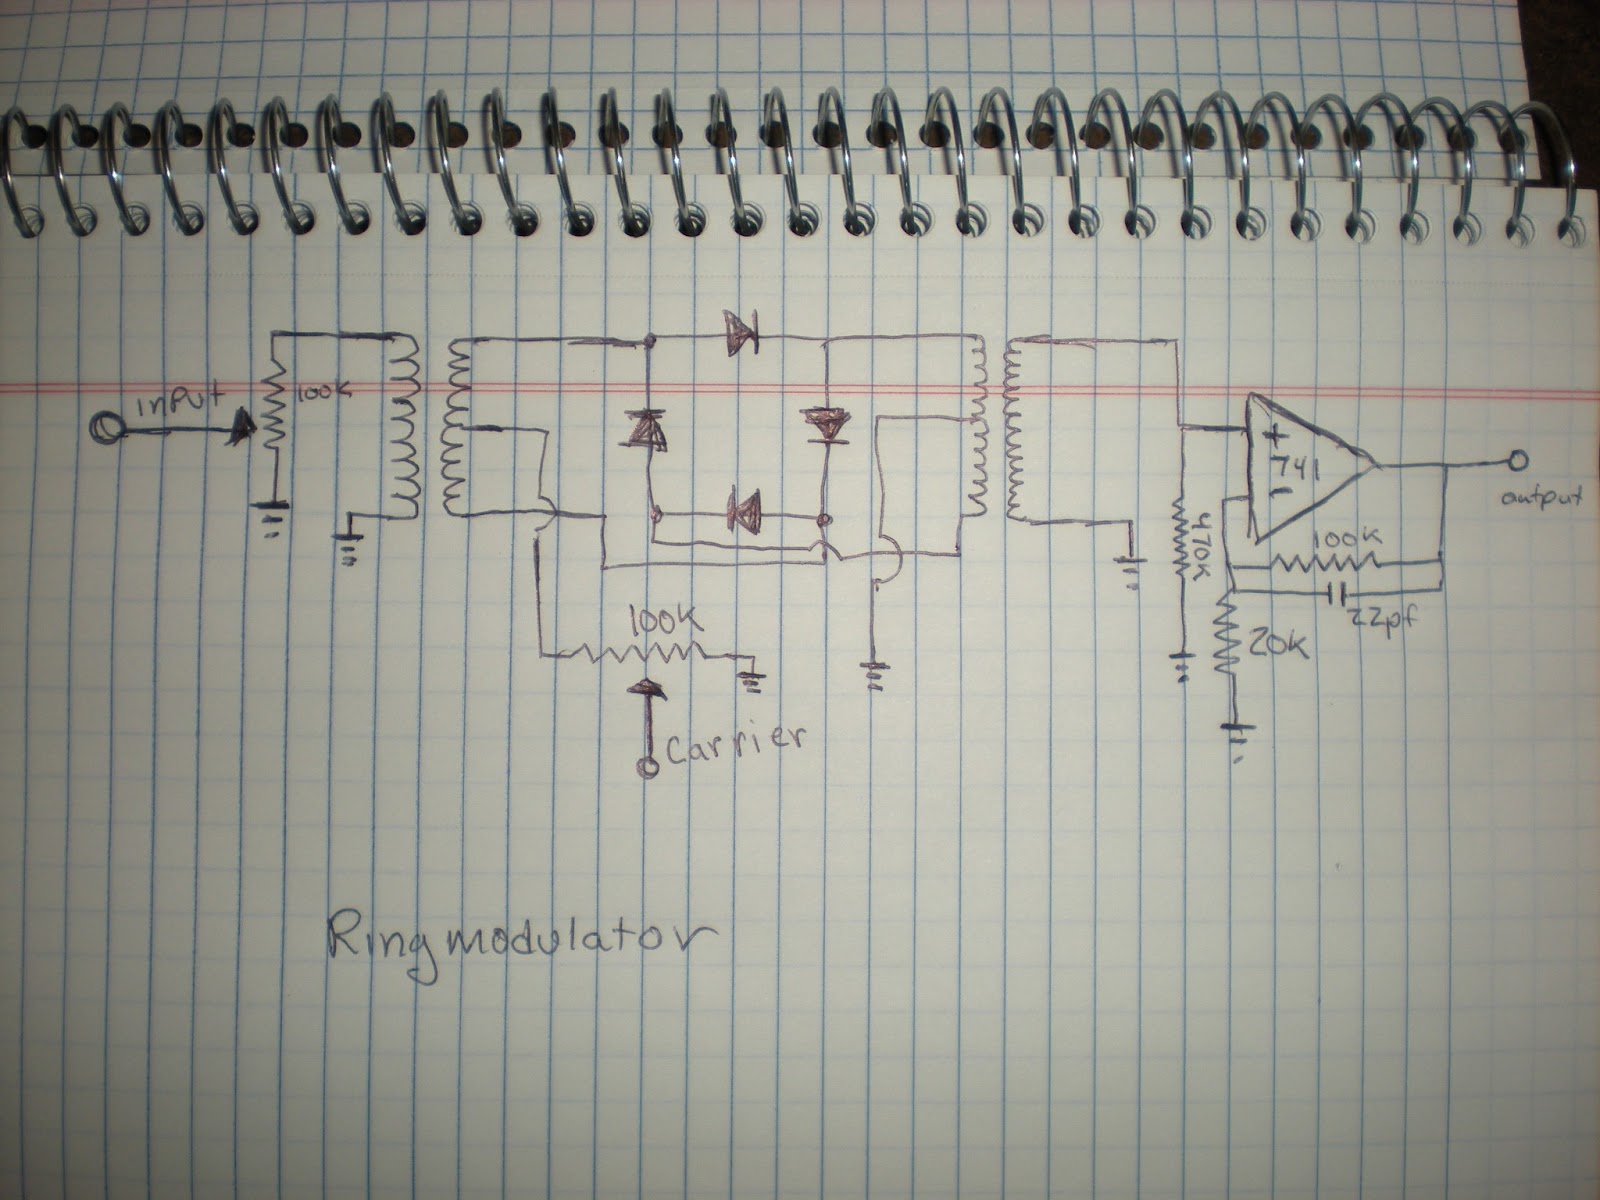 input
100K
+
741
-
output
470K
100K
22pf
20K
100K
Carrier
Ring modulator